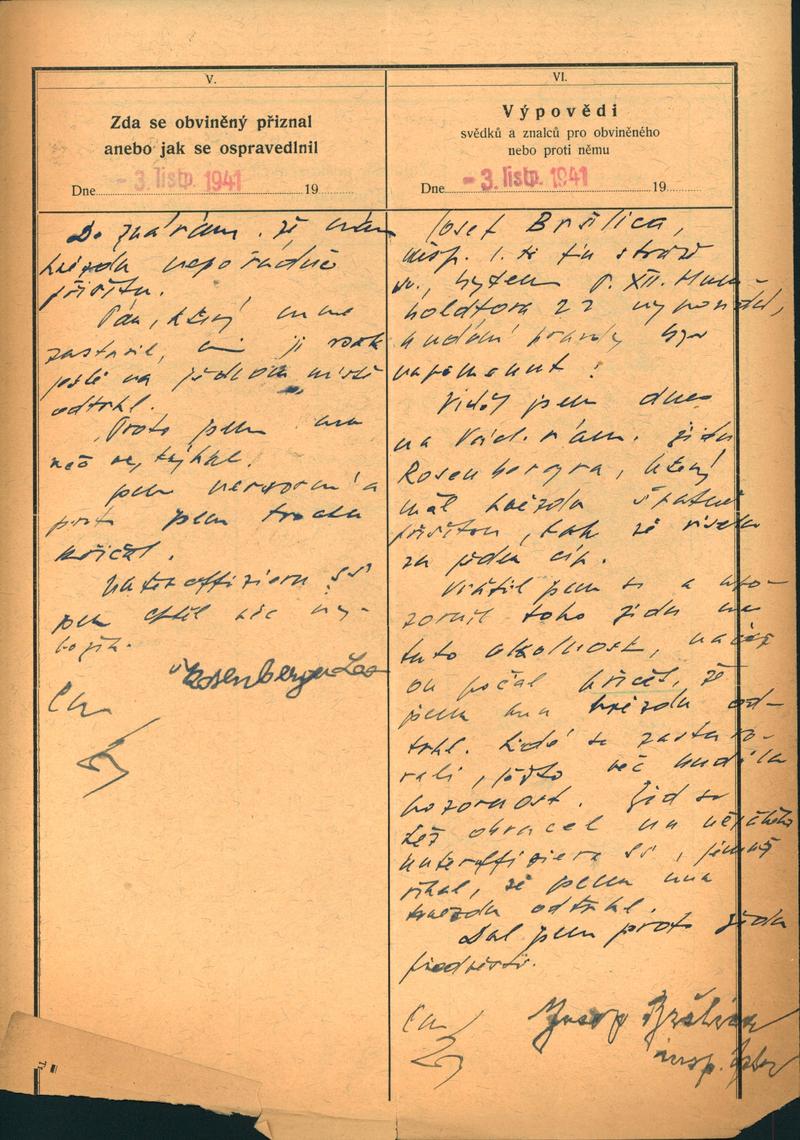 V.
Zda se obviněný přiznal
anebo jak se ospravedlnil
Dne - 3. listp. 1941 19
Doznávám, že mám
hvězdu nepořádně
přišitu.
Pán, který mne
zastavil, mi ji však
ještě na jednom místě
odtrhl.
Proto jsem na
něj
jsem nervosní a
proto jsem trochu
křičel.
Unteroffiziera SS
jsem chtěl
Rosenberger Leo
VI.
Výpovědi
svědků a znalců pro obviněného
nebo proti němu
Dne - 3. listp. 1941 19
Josef Bršlica,
insp. fin stráže
bytem P. XII. Hum-
boldtova 22 vypovídá,
k udání pravdy byv
napomenut:
Viděl jsem dnes
na Václ. nám. žida
Rosenbergra, který
měl hvězdu špatně
přišitou, tak že visela
za jeden cíp.
Vrátil jsem se a upo-
zornil toho žida na
tuto okolnost, načež
on počal křičet, že
jsem mu hvězdu od-
trhl. Lidé se zastavo-
vali, ježto věc budila
pozornost. Žid se
též obracel na nějakého
unteroffiziera SS, jemuž
říkal, že jsem mu
hvězdu odtrhl.
Dal jsem proto žida
předvésti.
Josef Bršlica
insp.